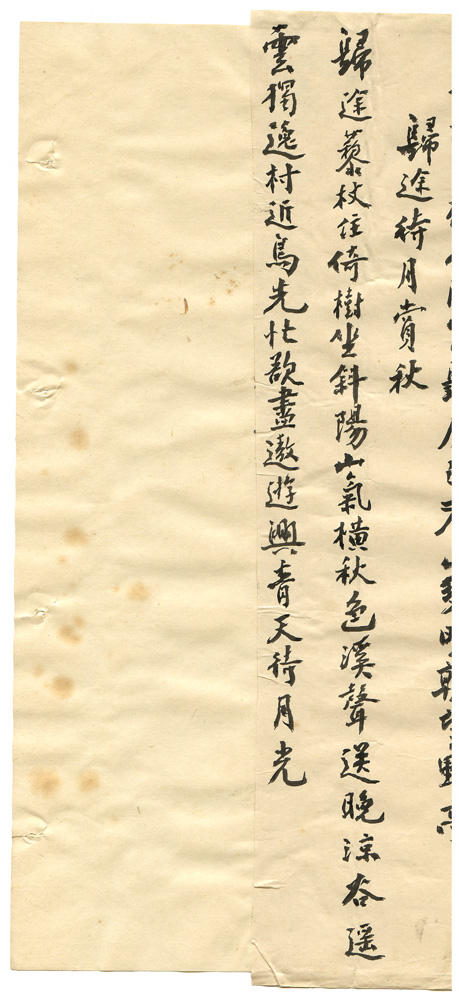 歸途待月賞秋
歸途藜杖住倚樹坐斜陽山氣橫秋色溪聲送晚涼谷遥
雲獨逸村近鳥先忙欲盡遨遊興青天待月光